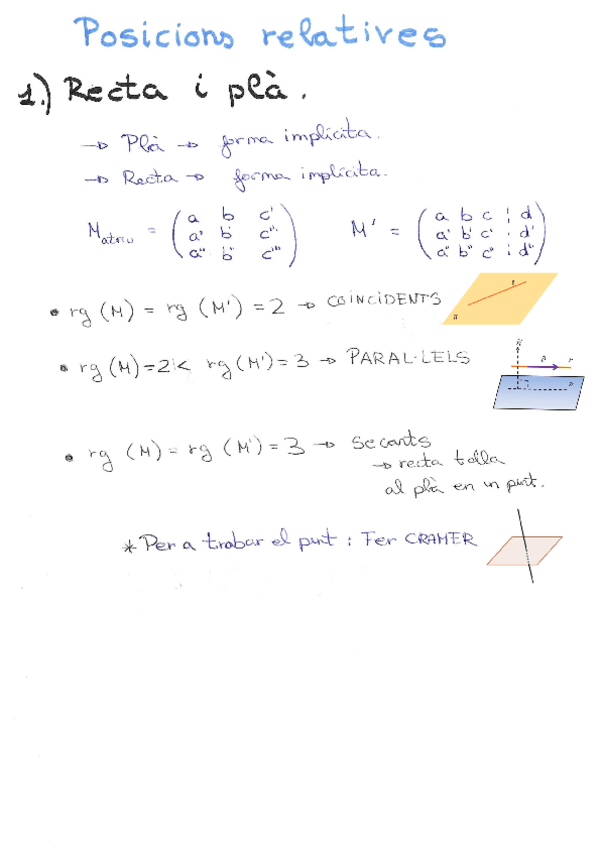 Posicions relatives
1.) Recta i plà.
→ Plà → forma implícita.
→ Recta → forma implícita.
Matriu = (a b c' / a' b' c'' / a'' b'' c''') M' = (a b c ¦ d / a' b' c' ¦ d' / a'' b'' c'' ¦ d'')
• rg (M) = rg (M') = 2 → COINCIDENTS
• rg (M) = 2 < rg (M') = 3 → PARAL·LELS
• rg (M) = rg (M') = 3 → Secants
→ recta talla
al plà en un punt.
* Per a trobar el punt : Fer CRAMER